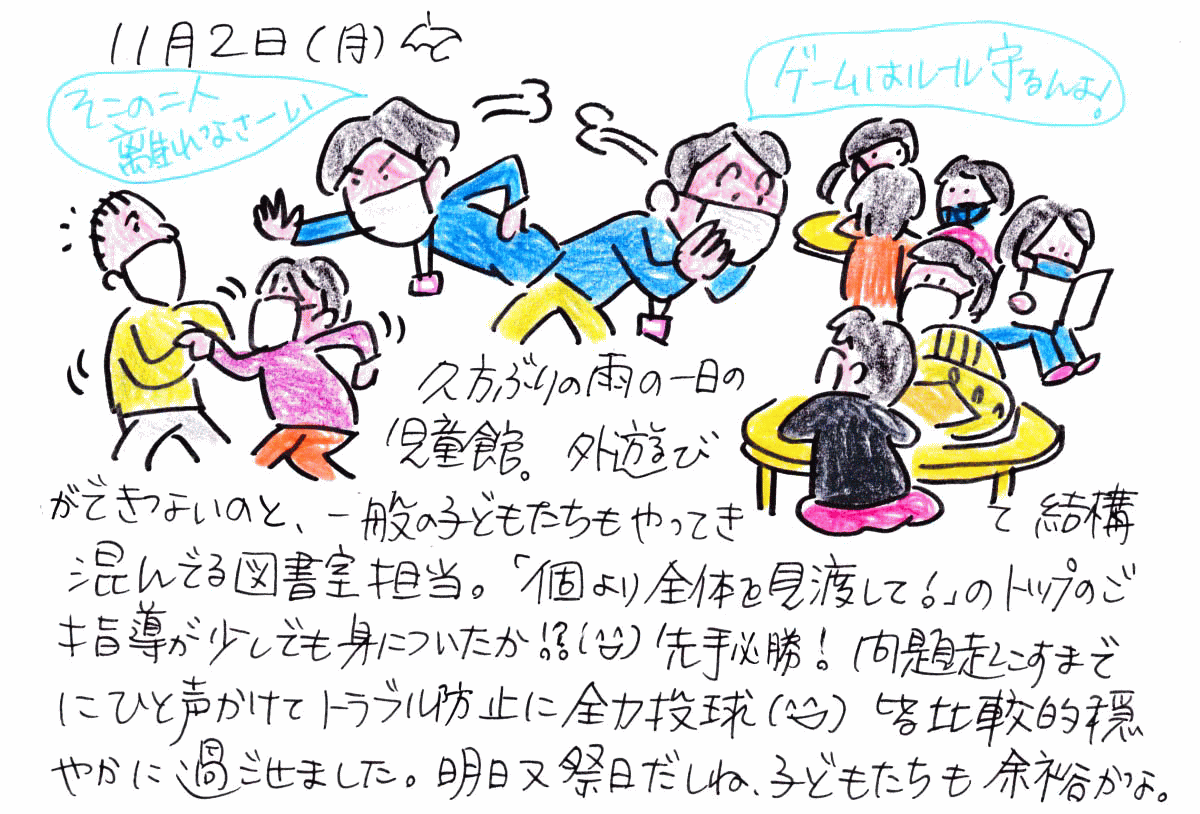 11月2日(月)
そこの二人
離れなさーい
ゲームはルール守るんよ!
久方ぶりの雨の一日の
児童館。外遊び
ができないのと、一般の子どもたちもやってきて結構
混んでる図書室担当。「個より全体を見渡して!」のトップのご
指導が少しでも身についたか!?(^^) 先手必勝! 問題起こすまで
にひと声かけてトラブル防止に全力投球(^^) 皆比較的穏
やかに過ごせました。明日又祭日だしね、子どもたちも余裕かな。